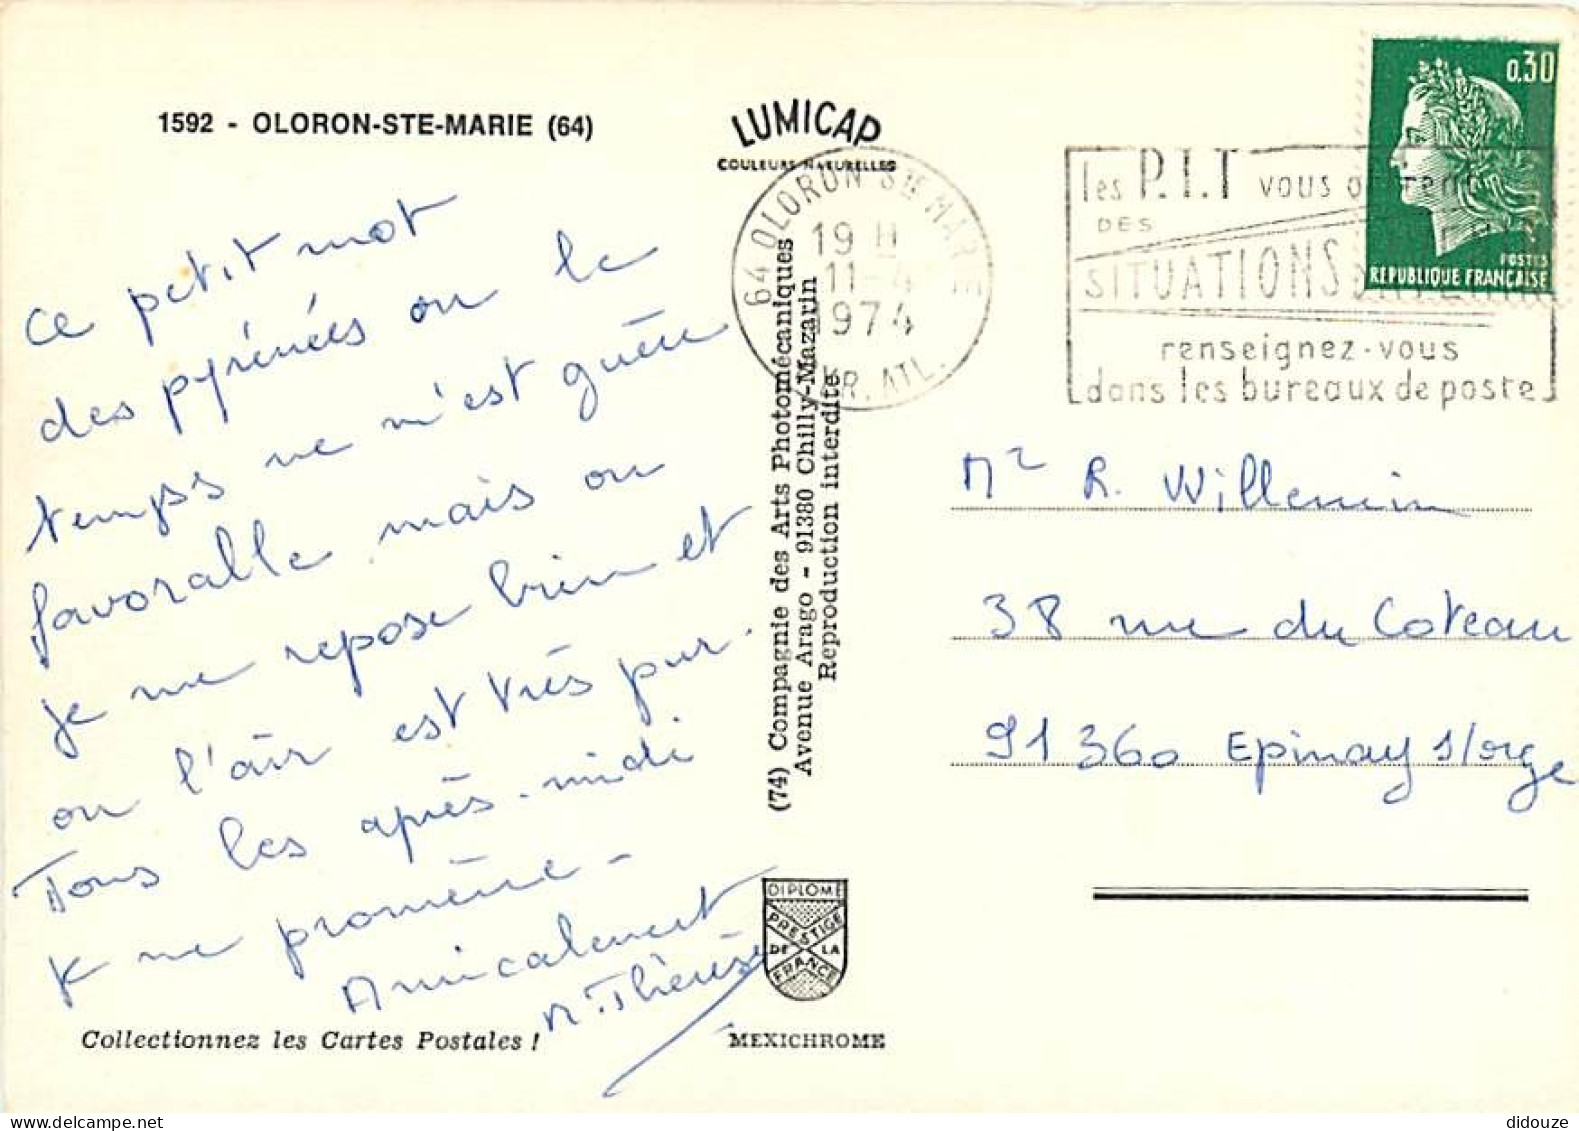 1592 - OLORON-STE-MARIE (64)
LUMICAP
COULEURS NATURELLES
ce petit mot
des pyrénées ou le
temps ne m'est guère
favorable mais on
je me repose bien et
on l'air est très pur.
Tous les après-midi
je me promène -
Amicalement
M. Thérèse
Collectionnez les Cartes Postales !
(74) Compagnie des Arts Photomécaniques
Avenue Arago - 91380 Chilly-Mazarin
Reproduction interdite
DIPLOME
PRESTIGE
DE LA
FRANCE
MEXICHROME
64 OLORON STE MARIE
19 H
11-4
1974
PYR. ATL.
les P.T.T vous offrent
DES
SITUATIONS
renseignez-vous
dans les bureaux de poste
0,30
POSTES
REPUBLIQUE FRANÇAISE
Mr R. Willemin
38 rue du Coteau
91360 Epinay s/orge
didouze